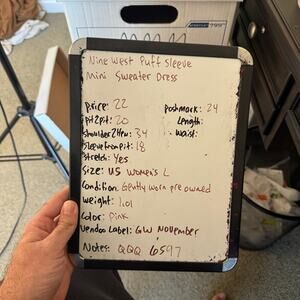 Nine West Puff Sleeve
Mini Sweater Dress
Price: 22
poshmark: 24
pit2pit: 20
Length:
Shoulder2Hem: 34
waist:
Sleeve from pit: 18
Stretch: Yes
Size: US Women's L
Condition: Gently worn pre owned
Weight: 1.01
Color: Pink
Vendoo Label: GW November
Notes: QQQ 6597